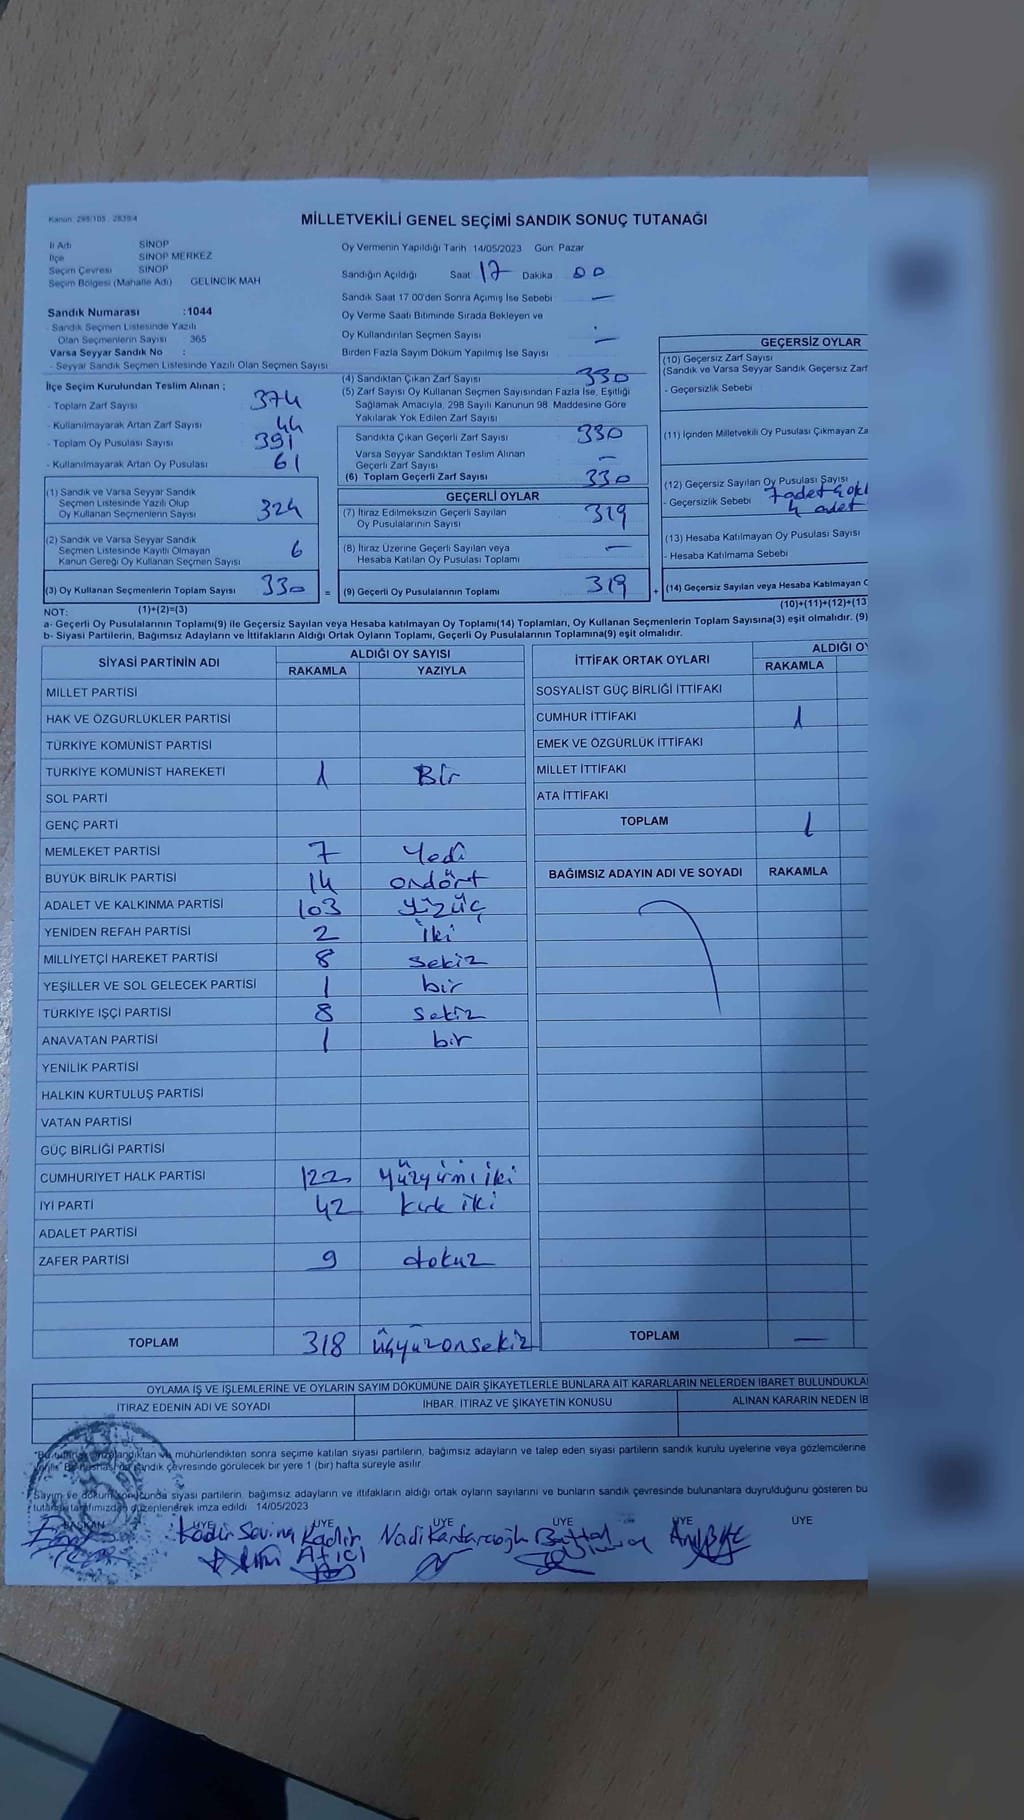 Kanun: 298/105 - 2839/4
MİLLETVEKİLİ GENEL SEÇİMİ SANDIK SONUÇ TUTANAĞI
İl Adı SİNOP
İlçe SİNOP MERKEZ
Seçim Çevresi SİNOP
Seçim Bölgesi (Mahalle Adı) GELİNCİK MAH
Oy Vermenin Yapıldığı Tarih :14/05/2023 Gün: Pazar
Sandığın Açıldığı Saat 17 Dakika 00
Sandık Saat 17 00'den Sonra Açımış İse Sebebi —
Oy Verme Saati Bitiminde Sırada Bekleyen ve
Oy Kullandırılan Seçmen Sayısı —
Birden Fazla Sayım Döküm Yapılmış İse Sayısı
Sandık Numarası :1044
- Sandık Seçmen Listesinde Yazılı
Olan Seçmenlerin Sayısı 365
Varsa Seyyar Sandık No :
- Seyyar Sandık Seçmen Listesinde Yazılı Olan Seçmen Sayısı
İlçe Seçim Kurulundan Teslim Alınan ;
- Toplam Zarf Sayısı 374
- Kullanılmayarak Artan Zarf Sayısı 44
- Toplam Oy Pusulası Sayısı 391
- Kullanılmayarak Artan Oy Pusulası 61
(1) Sandık ve Varsa Seyyar Sandık
Seçmen Listesinde Yazılı Olup
Oy Kullanan Seçmenlerin Sayısı 324
(2) Sandık ve Varsa Seyyar Sandık
Seçmen Listesinde Kayıtlı Olmayan
Kanun Gereği Oy Kullanan Seçmen Sayısı 6
(3) Oy Kullanan Seçmenlerin Toplam Sayısı 330 =
(4) Sandıktan Çıkan Zarf Sayısı 330
(5) Zarf Sayısı Oy Kullanan Seçmen Sayısından Fazla İse, Eşitliği
Sağlamak Amacıyla, 298 Sayılı Kanunun 98. Maddesine Göre
Yakılarak Yok Edilen Zarf Sayısı
Sandıkta Çıkan Geçerli Zarf Sayısı 330
Varsa Seyyar Sandıktan Teslim Alınan
Geçerli Zarf Sayısı —
(6) Toplam Geçerli Zarf Sayısı 330
GEÇERLİ OYLAR
(7) İtiraz Edilmeksizin Geçerli Sayılan
Oy Pusulalarının Sayısı 319
(8) İtiraz Üzerine Geçerli Sayılan veya
Hesaba Katılan Oy Pusulası Toplamı —
(9) Geçerli Oy Pusulalarının Toplamı 319 +
GEÇERSİZ OYLAR
(10) Geçersiz Zarf Sayısı
(Sandık ve Varsa Seyyar Sandık Geçersiz Zarf
- Geçersizlik Sebebi
(11) İçinden Milletvekili Oy Pusulası Çıkmayan Za
(12) Geçersiz Sayılan Oy Pusulası Sayısı
- Geçersizlik Sebebi 7 adet
4 adet
(13) Hesaba Katılmayan Oy Pusulası Sayısı
- Hesaba Katılmama Sebebi
(14) Geçersiz Sayılan veya Hesaba Katılmayan O
(10)+(11)+(12)+(13
NOT: (1)+(2)=(3)
a- Geçerli Oy Pusulalarının Toplamı(9) ile Geçersiz Sayılan veya Hesaba katılmayan Oy Toplamı(14) Toplamları, Oy Kullanan Seçmenlerin Toplam Sayısına(3) eşit olmalıdır. (9)
b- Siyasi Partilerin, Bağımsız Adayların ve İttifakların Aldığı Ortak Oyların Toplamı, Geçerli Oy Pusulalarının Toplamına(9) eşit olmalıdır.
SİYASİ PARTİNİN ADI ALDIĞI OY SAYISI
RAKAMLA YAZIYLA
MİLLET PARTİSİ
HAK VE ÖZGÜRLÜKLER PARTİSİ
TÜRKİYE KOMÜNİST PARTİSİ
TÜRKİYE KOMÜNİST HAREKETİ 1 Bir
SOL PARTİ
GENÇ PARTİ
MEMLEKET PARTİSİ 7 Yedi
BÜYÜK BİRLİK PARTİSİ 14 ondört
ADALET VE KALKINMA PARTİSİ 103 yüzüç
YENİDEN REFAH PARTİSİ 2 iki
MİLLİYETÇİ HAREKET PARTİSİ 8 sekiz
YEŞİLLER VE SOL GELECEK PARTİSİ 1 bir
TÜRKİYE İŞÇİ PARTİSİ 8 sekiz
ANAVATAN PARTİSİ 1 bir
YENİLİK PARTİSİ
HALKIN KURTULUŞ PARTİSİ
VATAN PARTİSİ
GÜÇ BİRLİĞİ PARTİSİ
CUMHURİYET HALK PARTİSİ 122 yüzyirmi iki
İYİ PARTİ 42 kırk iki
ADALET PARTİSİ
ZAFER PARTİSİ 9 dokuz
TOPLAM 318 üçyüzonsekiz
İTTİFAK ORTAK OYLARI ALDIĞI OY
RAKAMLA
SOSYALİST GÜÇ BİRLİĞİ İTTİFAKI
CUMHUR İTTİFAKI 1
EMEK VE ÖZGÜRLÜK İTTİFAKI
MİLLET İTTİFAKI
ATA İTTİFAKI
TOPLAM 1
BAĞIMSIZ ADAYIN ADI VE SOYADI RAKAMLA
TOPLAM —
OYLAMA İŞ VE İŞLEMLERİNE VE OYLARIN SAYIM DÖKÜMÜNE DAİR ŞİKAYETLERLE BUNLARA AİT KARARLARIN NELERDEN İBARET BULUNDUKLA
İTİRAZ EDENİN ADI VE SOYADI İHBAR, İTİRAZ VE ŞİKAYETİN KONUSU ALINAN KARARIN NEDEN İB
mühürlendikten sonra seçime katılan siyasi partilerin, bağımsız adayların ve talep eden siyasi partilerin sandık kurulu üyelerine veya gözlemcilerine
sandık çevresinde görülecek bir yere 1 (bir) hafta süreyle asılır
Sayım ve döküm sonucunda siyasi partilerin, bağımsız adayların ve ittifakların aldığı ortak oyların sayılarını ve bunların sandık çevresinde bulunanlara duyrulduğunu gösteren bu
tutanak tarafımızdan düzenlenerek imza edildi 14/05/2023
BAŞKAN ÜYE ÜYE ÜYE ÜYE ÜYE ÜYE
Kadir Sevinç Kadir Nadi Kantarcıoğlu
Atıcı